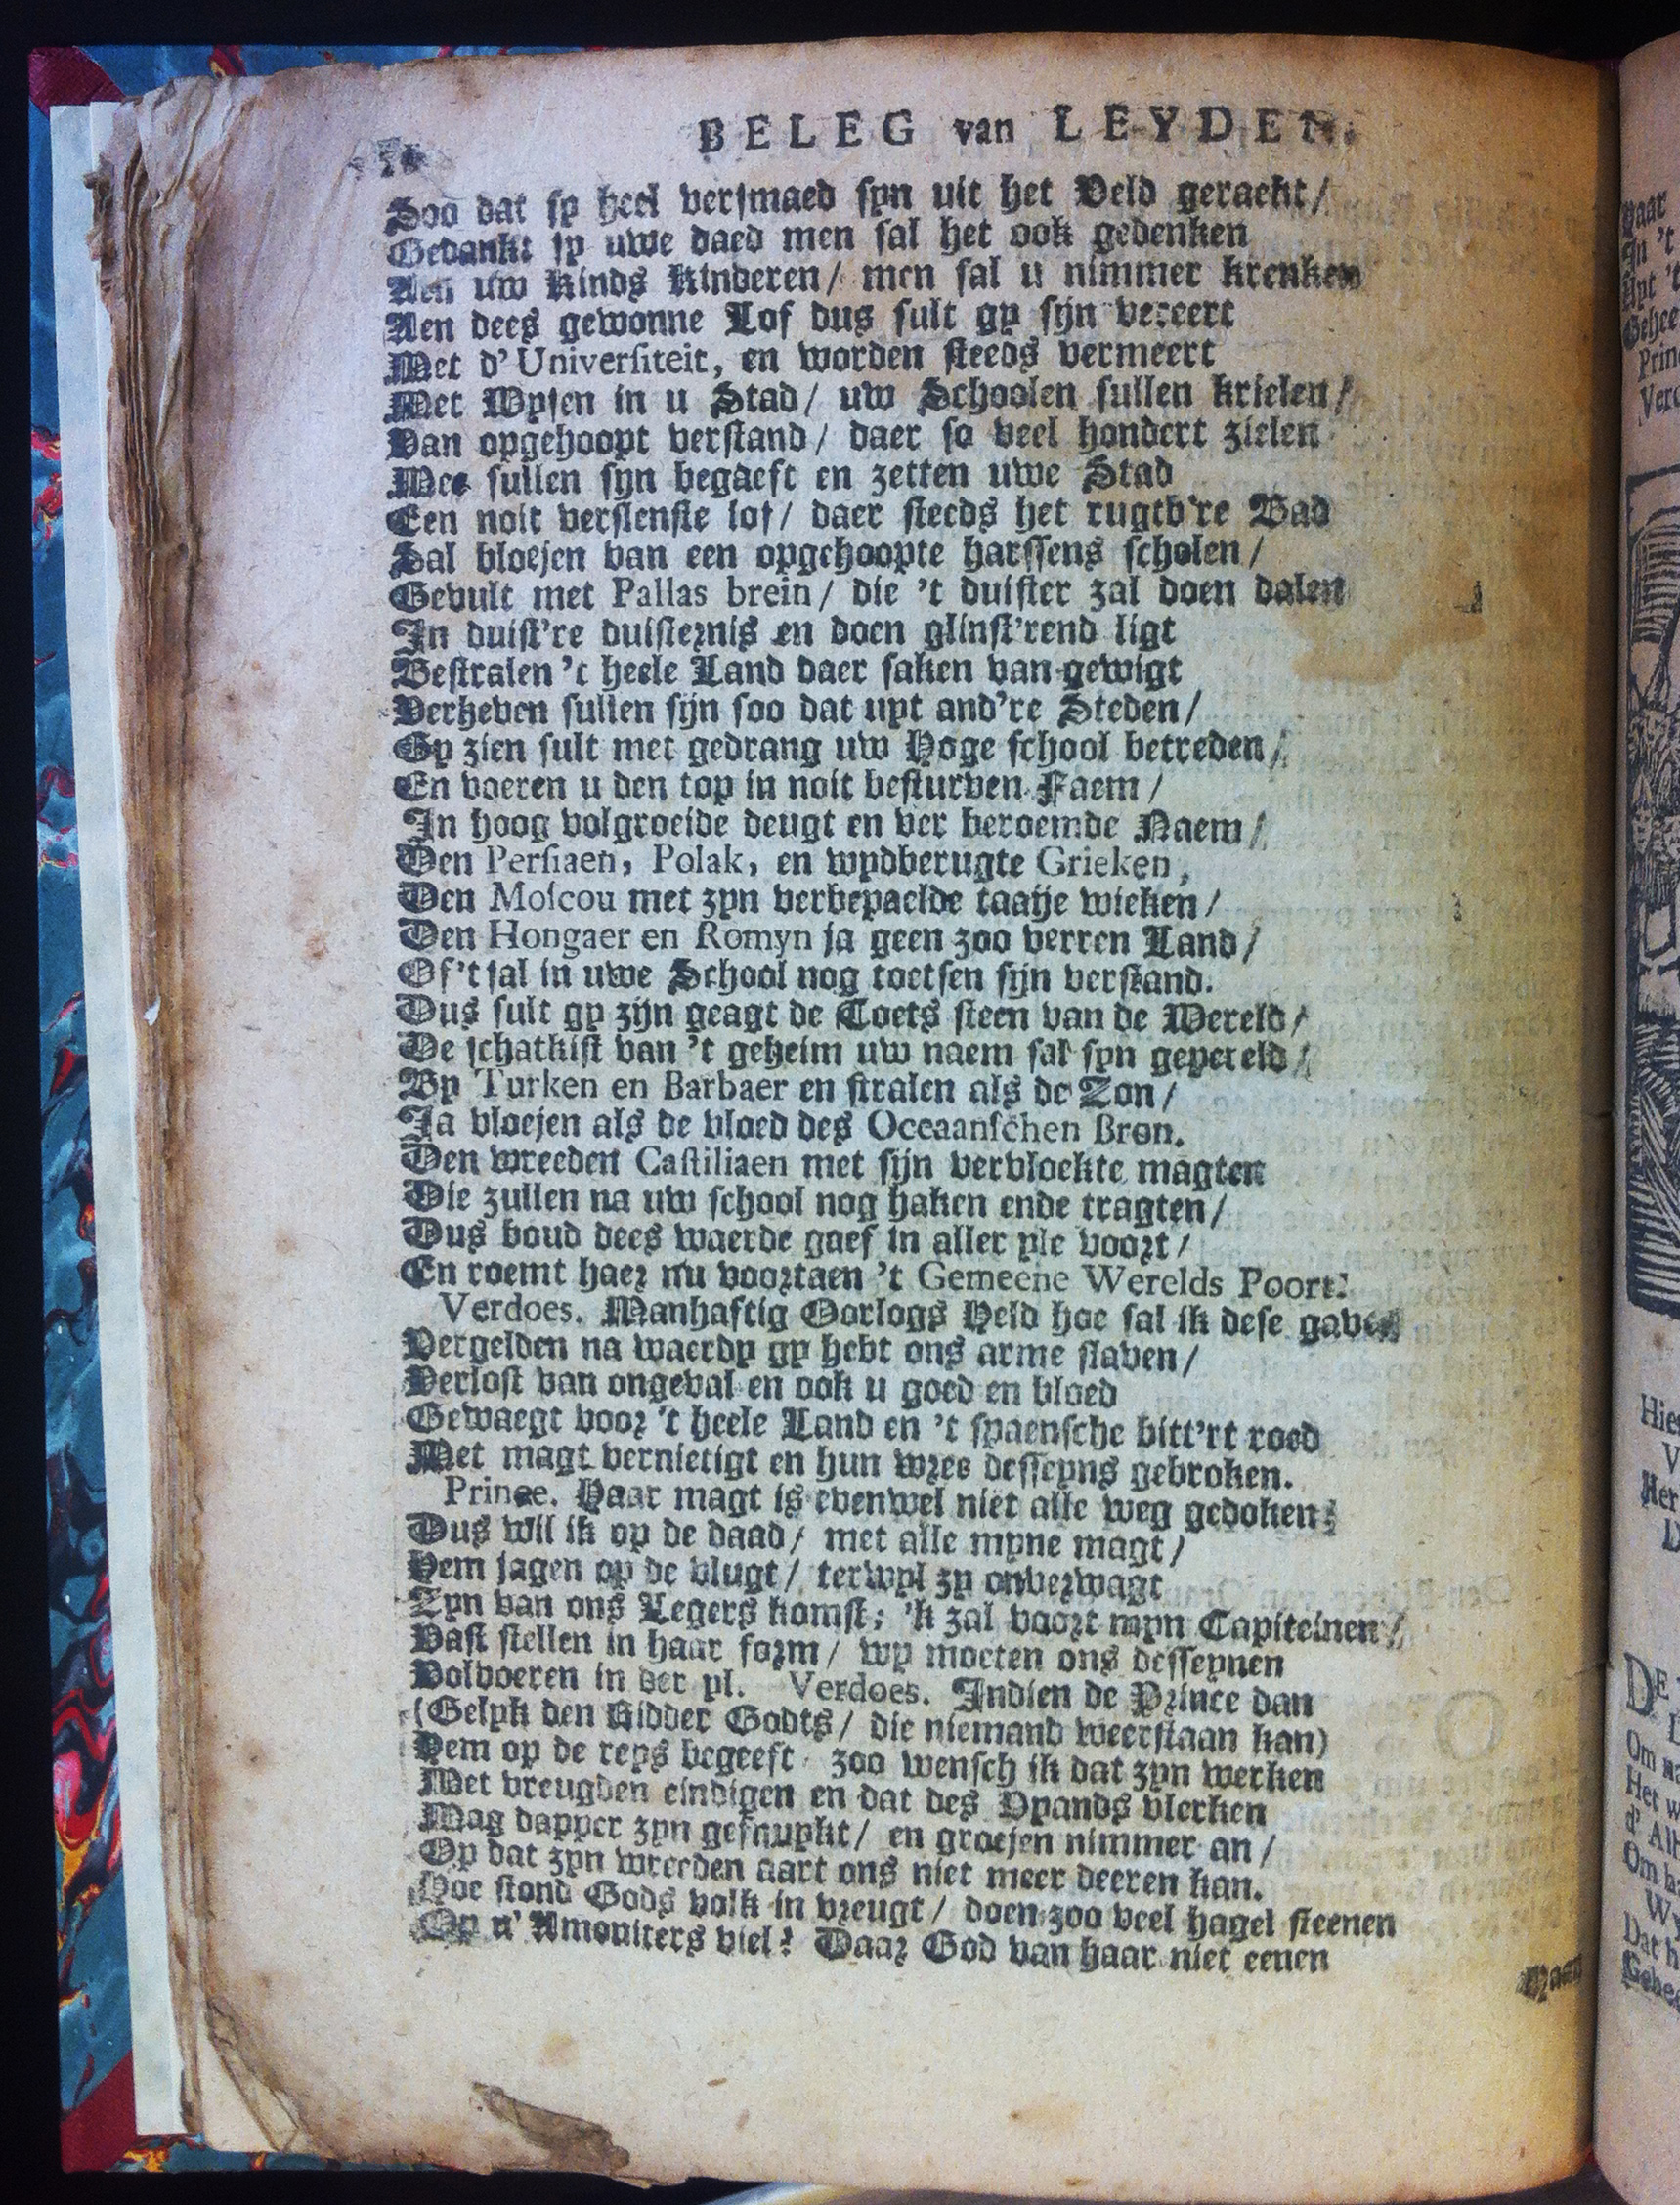 BELEG van LEYDEN.
Soo dat sy heel versmaed syn uit het Veld geraekt/
Gedankt sy uwe daed men sal het ook gedenken
Aen uw Kinds Kinderen/ men sal u nimmer krenken
Aen dees gewonne Lof dus sult gy sijn vereert
Met d' Universiteit, en worden steeds vermeert
Met Wysen in u Stad/ uw Schoolen sullen krielen/
Van opgehoopt verstand/ daer so veel hondert zielen
Mee sullen syn begaeft en zetten uwe Stad
Een noit verslenste lof/ daer steeds het rugtb're Bad
Sal vloejen van een opgehoopte harssens scholen/
Gevult met Pallas brein/ die 't duister zal doen dalen
In duist're duisternis en doen glinst'rend ligt
Bestralen 't heele Land daer saken van gewigt
Verheven sullen sijn soo dat uyt and're Steden/
Gy zien sult met gedrang uw Hoge school betreden/
En voeren u den top in noit besturven Faem/
In hoog volgroeide deugt en ver beroemde Naem/
Den Persiaen, Polak, en wydberugte Grieken,
Den Moscou met zyn verbepaelde taatje wieken/
Den Hongaer en Romyn ja geen zoo verren Land/
Of 't sal in uwe School nog toetsen sijn verstand.
Dus sult gy zijn geagt de Toets steen van de Wereld/
De schatkist van 't geheim uw naem sal syn gepereld/
By Turken en Barbaer en stralen als de Zon/
Ja vloejen als de vloed des Oceaanschen Bron.
Den wreeden Castiliaen met sijn vervloekte magten
Die zullen na uw school nog haken ende tragten/
Dus boud dees waerde gaef in aller yle voort/
En roemt haer nu voortaen 't Gemeene Werelds Poort.
Verdoes. Manhaftig Oorlogs Held hoe sal ik dese gaven
Vergelden na waerdy gy hebt ons arme slaven/
Verlost van ongeval en ook u goed en bloed
Gewaegt voor 't heele Land en 't spaensche bitt'rt roed
Met magt vernietigt en hun wree desseyns gebroken.
Prince. Haar magt is evenwel niet alle weg gedoken;
Dus wil ik op de daad/ met alle myne magt/
Hem jagen op de vlugt/ terwyl zy onverwagt
Zyn van ons Legers komst; 'k zal voort myn Capiteinen/
Vast stellen in haar form/ wy moeten ons desseynen
Volvoeren in der yl. Verdoes. Indien de Prince dan
(Gelyk den Ridder Godts/ die niemand weerstaan kan)
Hem op de reys begeeft zoo wensch ik dat zyn werken
Met vreugden eindigen en dat des Vyands vlerken
Mag dapper zyn gesnuykt/ en groejen nimmer an/
Op dat zyn wreeden aart ons niet meer deeren kan.
Hoe stond Gods volk in vreugt/ doen zoo veel hagel steenen
Op d' Amoniters viel? Daar God van haar niet eenen